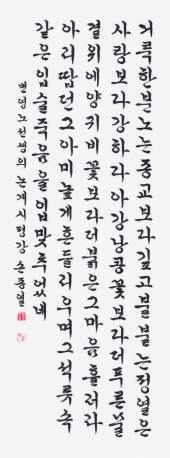 거룩한분노는종교보다깊고불붙는정열은
사랑보다강하다아강낭콩꽃보다더푸른물
결위에양귀비꽃보다더붉은그마음흘러라
아리땁던그아미높게흔들리우며그석류속
같은입술죽음을입맞추었네
변영노선생의논개시평강손종열